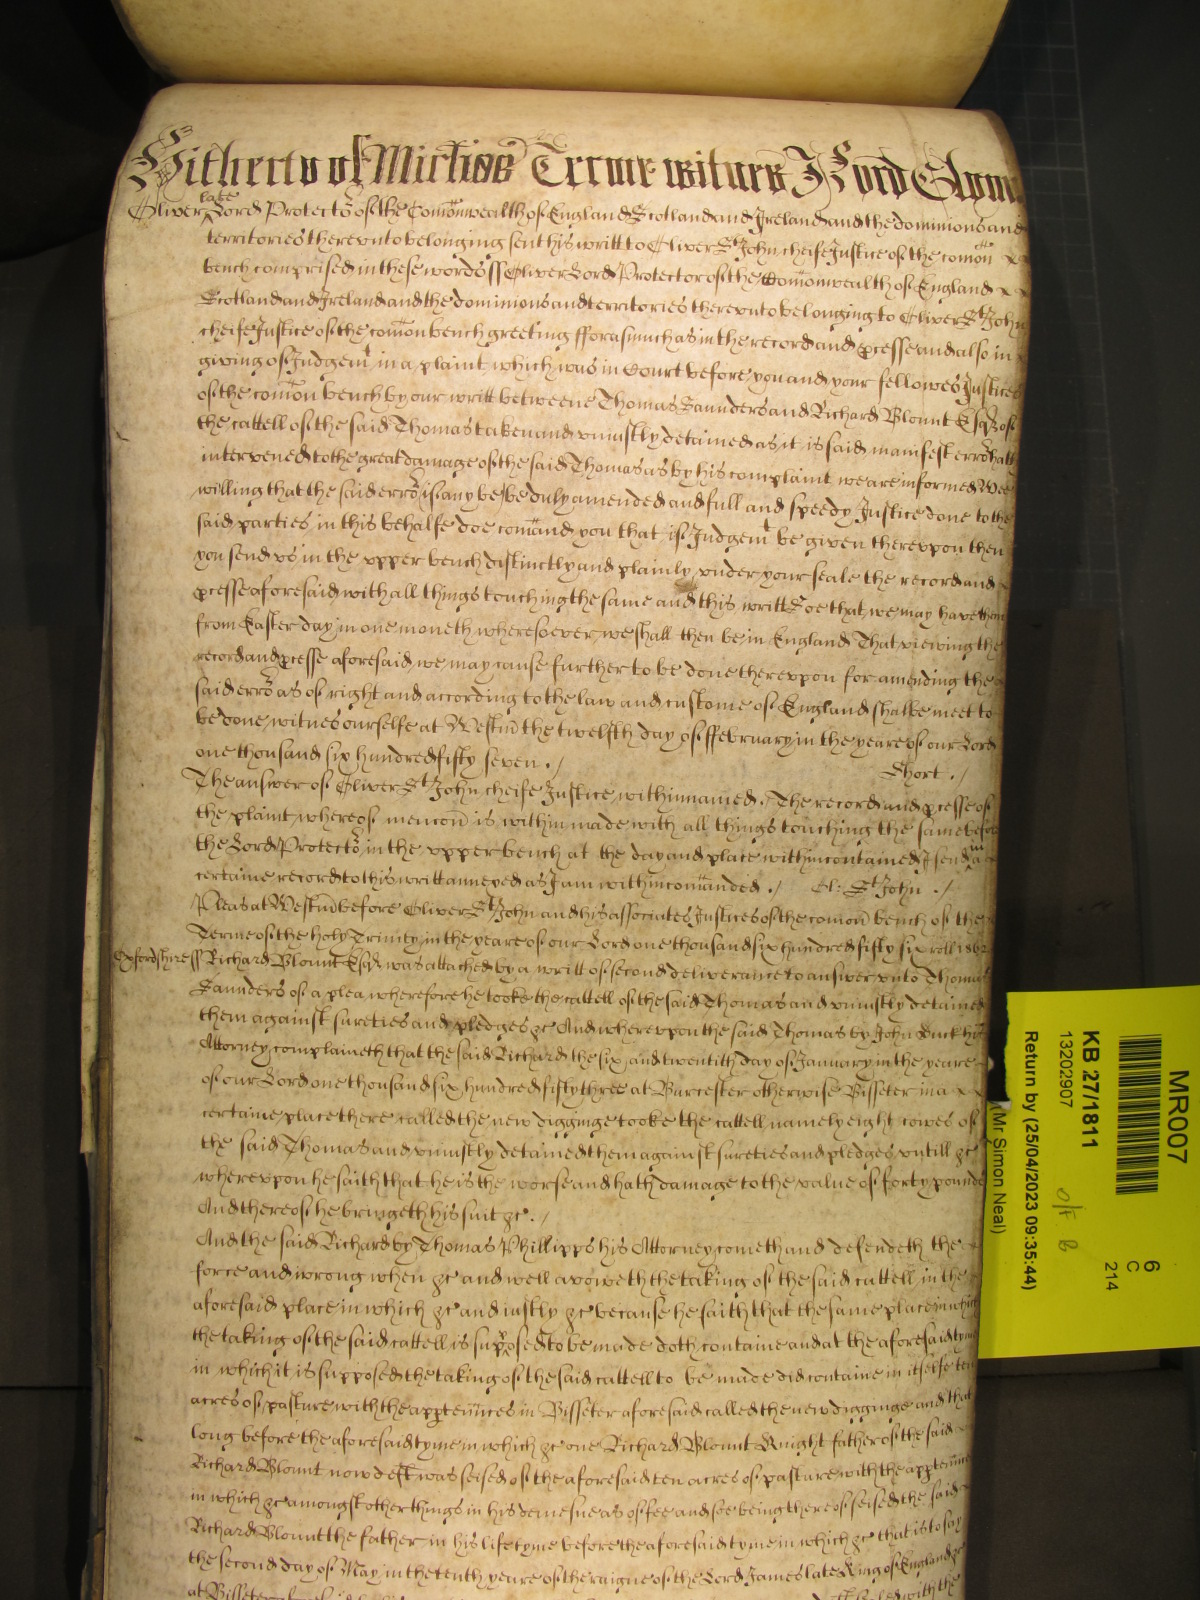 Hitherto of Mich'as Terme witnes J Lord Glynn
Oliver late Lord Protector of the Comonwealth of England Scotland and Ireland and the dominions and
territories therevnto belonging sent his writt to Oliver St John cheife Justice of the comon
bench comprised in these words ss Oliver Lord Protector of the Comonwealth of England
Scotland and Ireland and the dominions and territories therevnto belonging to Oliver St John
cheife Justice of the comon bench greeting fforasmuch as in the record and pcesse and also in
giving of Judgemt in a plaint which was in Court before you and your fellowes Justices
of the comon bench by our writt betweene Thomas Saunders and Richard Blount Esqr of
the cattell of the said Thomas taken and vniustly detained as it is said manifest error hath
intervened to the great damage of the said Thomas as by his complaint we are informed Wee
willing that the said error if any be, be duly amended and full and speedy Justice done to the
said parties in this behalfe doe comand you that if Judgemt be given therevpon then
you send vs in the vpper bench distinctly and plainly vnder your seale the record and
pcesse aforesaid with all things touching the same and this writt Soe that we may have them
from Easter day in one moneth wheresoever we shall then be in England That viewing the
record and pcesse aforesaid we may cause further to be done therevpon for amending the
said error as of right and according to the law and custome of England shalbe meet to
be done, witnes ourselfe at Westm the twelfth day of ffebruary in the yeare of our Lord
one thousand six hundred fifty seven ./
Short ./
The answer of Oliver St John cheife Justice within named ./ The record and pcesse of
the plaint whereof mencon is within made with all things touching the same before
the Lord Protector in the vpper bench at the day and place within contained I send in a
certaine record to this writt annexed as I am within comanded ./ Ol: St John ./
Pleas at Westm before Oliver St John and his associates Justices of the comon bench of the
Terme of the holy Trinity in the yeare of our Lord one thousand six hundred fifty six roll 1862
Oxfordshire ss Richard Blount Esqr was attached by a writt of second deliverance to answer vnto Thomas
Saunders of a plea wherefore he tooke the cattell of the said Thomas and vniustly detained
them against sureties and pledges &c And wherevpon the said Thomas by John Buck his
Attorney complaineth that the said Richard the six and twentith day of January in the yeare
of our Lord one thousand six hundred fifty three at Burcester otherwise Bisseter in a
certaine place there called the new digginge tooke the cattell namely eight cowes of
the said Thomas and vniustly detained them against sureties and pledges vntill &c
wherevpon he saith that he is the worse and hath damage to the value of forty pounds
And thereof he bringeth his suit &c ./
And the said Richard by Thomas Phillipps his Attorney cometh and defendeth the
force and wrong when &c and well avoweth the taking of the said cattell in the
aforesaid place in which &c and iustly &c because he saith that the same place in which
the taking of the said cattell is supposed to be made doth containe and at the aforesaid tyme
in which it is supposed the taking of the said cattell to be made did containe in itselfe ten
acres of pasture with the apptennces in Bisseter aforesaid called the new digginge and that
long before the aforesaid tyme in which &c one Richard Blount Knight father of the said
Richard Blount now deft was seised of the aforesaid ten acres of pasture with the apptennces
in which &c amongst other things in his demesne as of fee and soe being thereof seised the said
Richard Blount the father in his life tyme before the aforesaid tyme in which &c that is to say
the second day of May in the tenth yeare of the raigne of the Lord James late King of England &c
at Bisseter
MR007
6
C
214
KB 27/1811
13202907
Return by (25/04/2023 09:35:44)
(Mr Simon Neal)